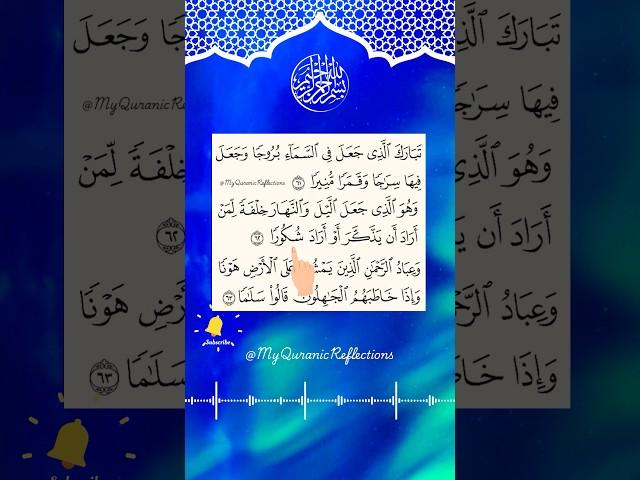 بسم الله الرحمن الرحيم
تَبَارَكَ ٱلَّذِى جَعَلَ فِى ٱلسَّمَآءِ بُرُوجًا وَجَعَلَ
فِيهَا سِرَٰجًا وَقَمَرًا مُّنِيرًا ٦١ @MyQuranicReflections
وَهُوَ ٱلَّذِى جَعَلَ ٱلَّيْلَ وَٱلنَّهَارَ خِلْفَةً لِّمَنْ
أَرَادَ أَن يَذَّكَّرَ أَوْ أَرَادَ شُكُورًا ٦٢
وَعِبَادُ ٱلرَّحْمَٰنِ ٱلَّذِينَ عَلَى ٱلْأَرْضِ هَوْنًا
وَإِذَا خَاطَبَهُمُ ٱلْجَٰهِلُونَ قَالُوا۟ سَلَٰمًا ٦٣
Subscribe
@MyQuranicReflections